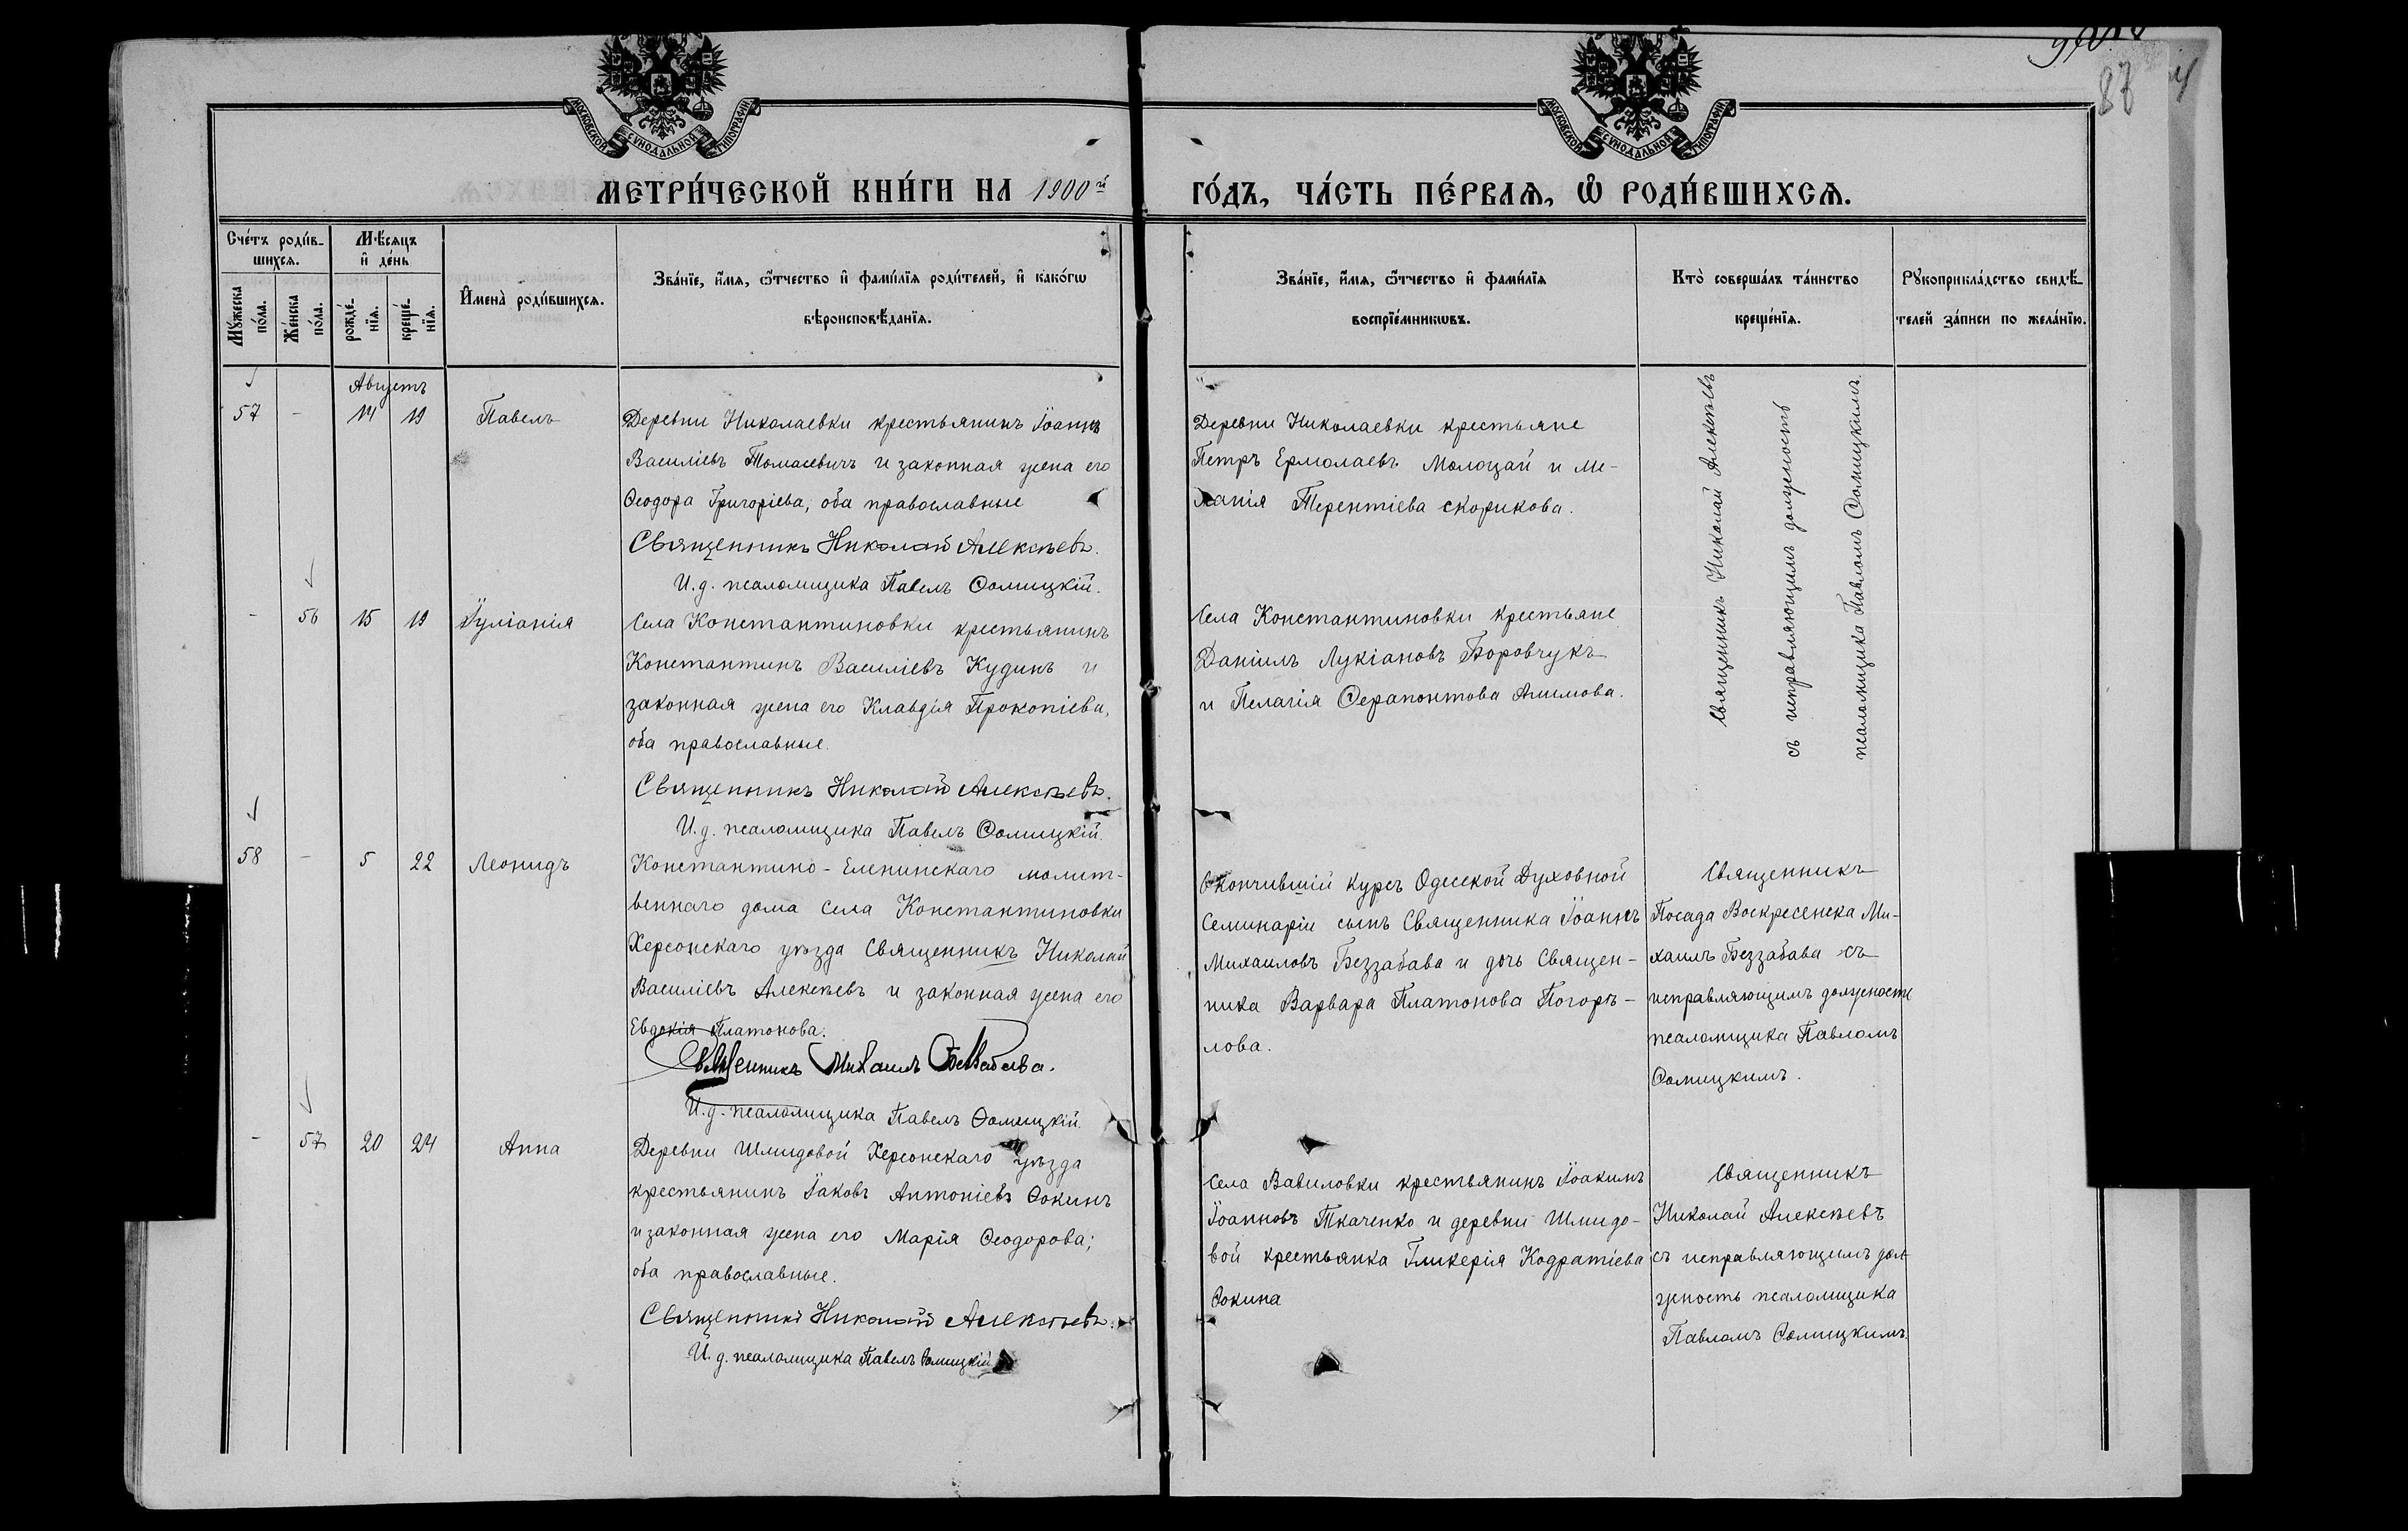 87
МОСКОВСКОЙ СѴНОДАЛЬНОЙ ТИПОГРАФІИ
МОСКОВСКОЙ СѴНОДАЛЬНОЙ ТИПОГРАФІИ
МЕТРИ́ЧЕСКОЙ КНИ́ГИ НА 1900й ГО́ДЪ, ЧА́СТЬ ПЕ́РВАѦ, Ѡ РОДИ́ВШИХСѦ.
Сче́тъ роди́в-
шихсѧ.
Мꙋ́жеска
по́ла.
Же́нска
по́ла.
Мѣ́сѧцъ
и҆ де́нь
рожде́-
нїѧ.
креще́-
нїѧ.
И҆мена̀ роди́вшихсѧ.
Зва́нїе, и҆́мѧ, ѻ҆́тчество и҆ фами́лїѧ роди́телей, и҆ како́гѡ
вѣроисповѣ́данїѧ.
Зва́нїе, и҆́мѧ, ѻ҆́тчество и҆ фами́лїѧ
воспрїе́мникѡвъ.
Кто̀ соверша́лъ та́инство
креще́нїѧ.
Рꙋкоприкла́дство свидѣ́-
телей за́писи по жела́нїю.
Августъ
57 - 14 19 Павелъ
Деревни Николаевки крестьянинъ Іоаннъ
Василіевъ Томасевичъ и законная жена его
Ѳеодора Григоріева, оба православные
Священникъ Николай Алексѣевъ.
И. д. псаломщика Павелъ Ѳомицкій.
Деревни Николаевки крестьяне
Петръ Ермолаевъ Молоцай и Ме-
ланія Терентіева Скорикова.
Священникъ Николай Алексѣевъ
съ исправляющимъ должность
псаломщика Павломъ Ѳомицкимъ.
- 56 15 19 Іуліанія
Села Константиновки крестьянинъ
Константинъ Василіевъ Кудинъ и
законная жена его Клавдія Прокопіева,
оба православные.
Священникъ Николай Алексѣевъ.
И. д. псаломщика Павелъ Ѳомицкій.
Села Константиновки крестьяне
Даніилъ Лукіановъ Боровчукъ
и Пелагія Ѳерапонтова Ачимова.
58 - 5 22 Леонидъ
Константино-Еленинскаго молит-
веннаго дома села Константиновки
Херсонскаго уѣзда Священникъ Николай
Василіевъ Алексѣевъ и законная жена его
Евдокія Платонова.
Священникъ Михаилъ Беззабава.
И. д. псаломщика Павелъ Ѳомицкій.
Окончившій курсъ Одесской Духовной
Семинаріи сынъ Священника Іоаннъ
Михаиловъ Беззабава и дочь Священ-
ника Варвара Платонова Погорѣ-
лова.
Священникъ
Посада Воскресенска Ми-
хаилъ Беззабава съ
исправляющимъ должность
псаломщика Павломъ
Ѳомицкимъ.
- 57 20 24 Анна
Деревни Шмидовой Херсонскаго уѣзда
крестьянинъ Іаковъ Антоніевъ Ѳокинъ
и законная жена его Марія Ѳеодорова;
оба православные.
Священникъ Николай Алексѣевъ.
И. д. псаломщика Павелъ Ѳомицкій
Села Вавиловки крестьянинъ Іоакимъ
Іоанновъ Ткаченко и деревни Шмидо-
вой крестьянка Гликерія Кодратіева
Ѳокина
Священникъ
Николай Алексѣевъ
съ исправляющимъ дол-
жность псаломщика
Павломъ Ѳомицкимъ.